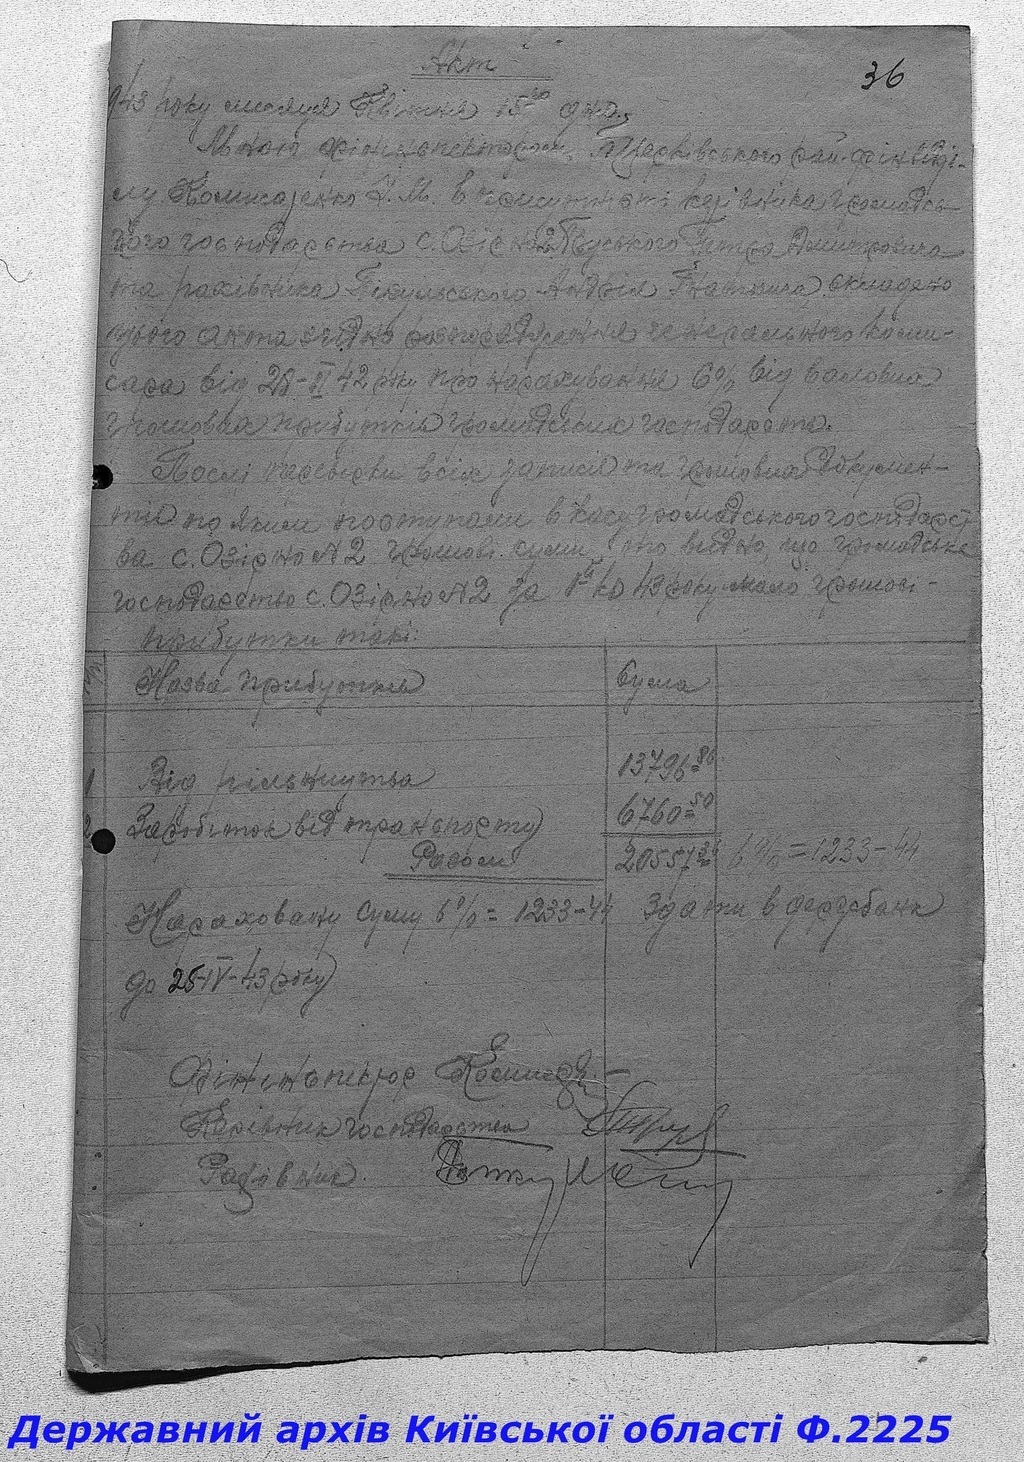 Акт
36
943 року місяця Квітня 15го дня.
Мною фінінспектором, райфінвідді-
лу Комисаренко Н. М. в присутності керівника громадсь-
кого господарства с. Озірно 2 Петра Дмитровича
та рахівника Андрія Гнатовича складено
цього акта згідно розпорядження генерального коми-
сара від 42 року про нарахування 6% від валових
грошових прибутків громадських господарств.
Послі перевірки всіх записів та грошових докумен-
тів по яким поступали в касу громадського господарст
ва с. Озірно №2 грошові суми, то видно, що громадське
господарство с. Озірно №2 за 1й кв 43 року мало грошові
прибутки такі:
Назва прибутків Сума
1 Від рільництва 13796=86
2 Заробіток від транспорту 6760=50
Разом 20557 36 6% = 1233-44
Нараховану суму 6% = 1233-44 здати в держбанк
до 25-IV-43 року
Фінінспектор
Керівник господарства
Рахівник
Державний архів Київської області Ф.2225